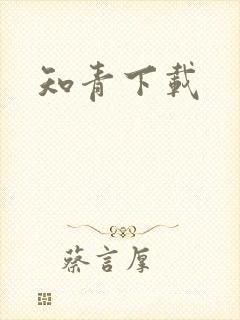 知青下载
蔡言厚